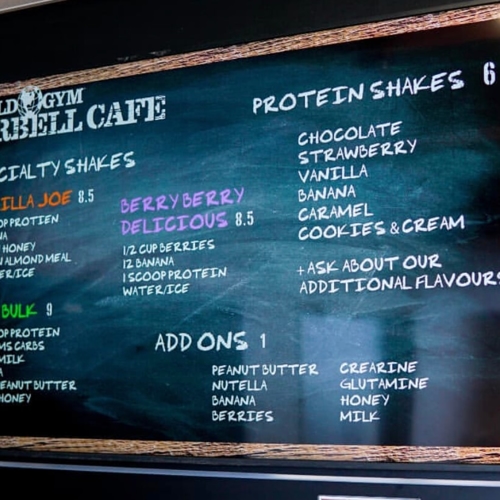 GYM
CAFE
SHAKES
JOE 8.5
HONEY
ALMOND MEAL
BULK 9
CARBS
MILK
HONEY
BERRY BERRY
DELICIOUS 8.5
1/2 CUP BERRIES
12 BANANA
1 SCOOP PROTEIN
WATER/ICE
PROTEIN SHAKES 6
CHOCOLATE
STRAWBERRY
VANILLA
BANANA
CARAMEL
COOKIES & CREAM
+ ASK ABOUT OUR
ADDITIONAL FLAVOURS
ADD ONS 1
PEANUT BUTTER
NUTELLA
BANANA
BERRIES
CREARINE
GLUTAMINE
HONEY
MILK